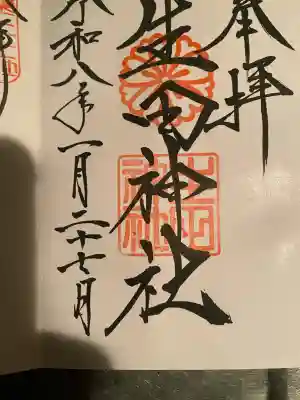 奉拝
生田神社
令和八年一月二十七日